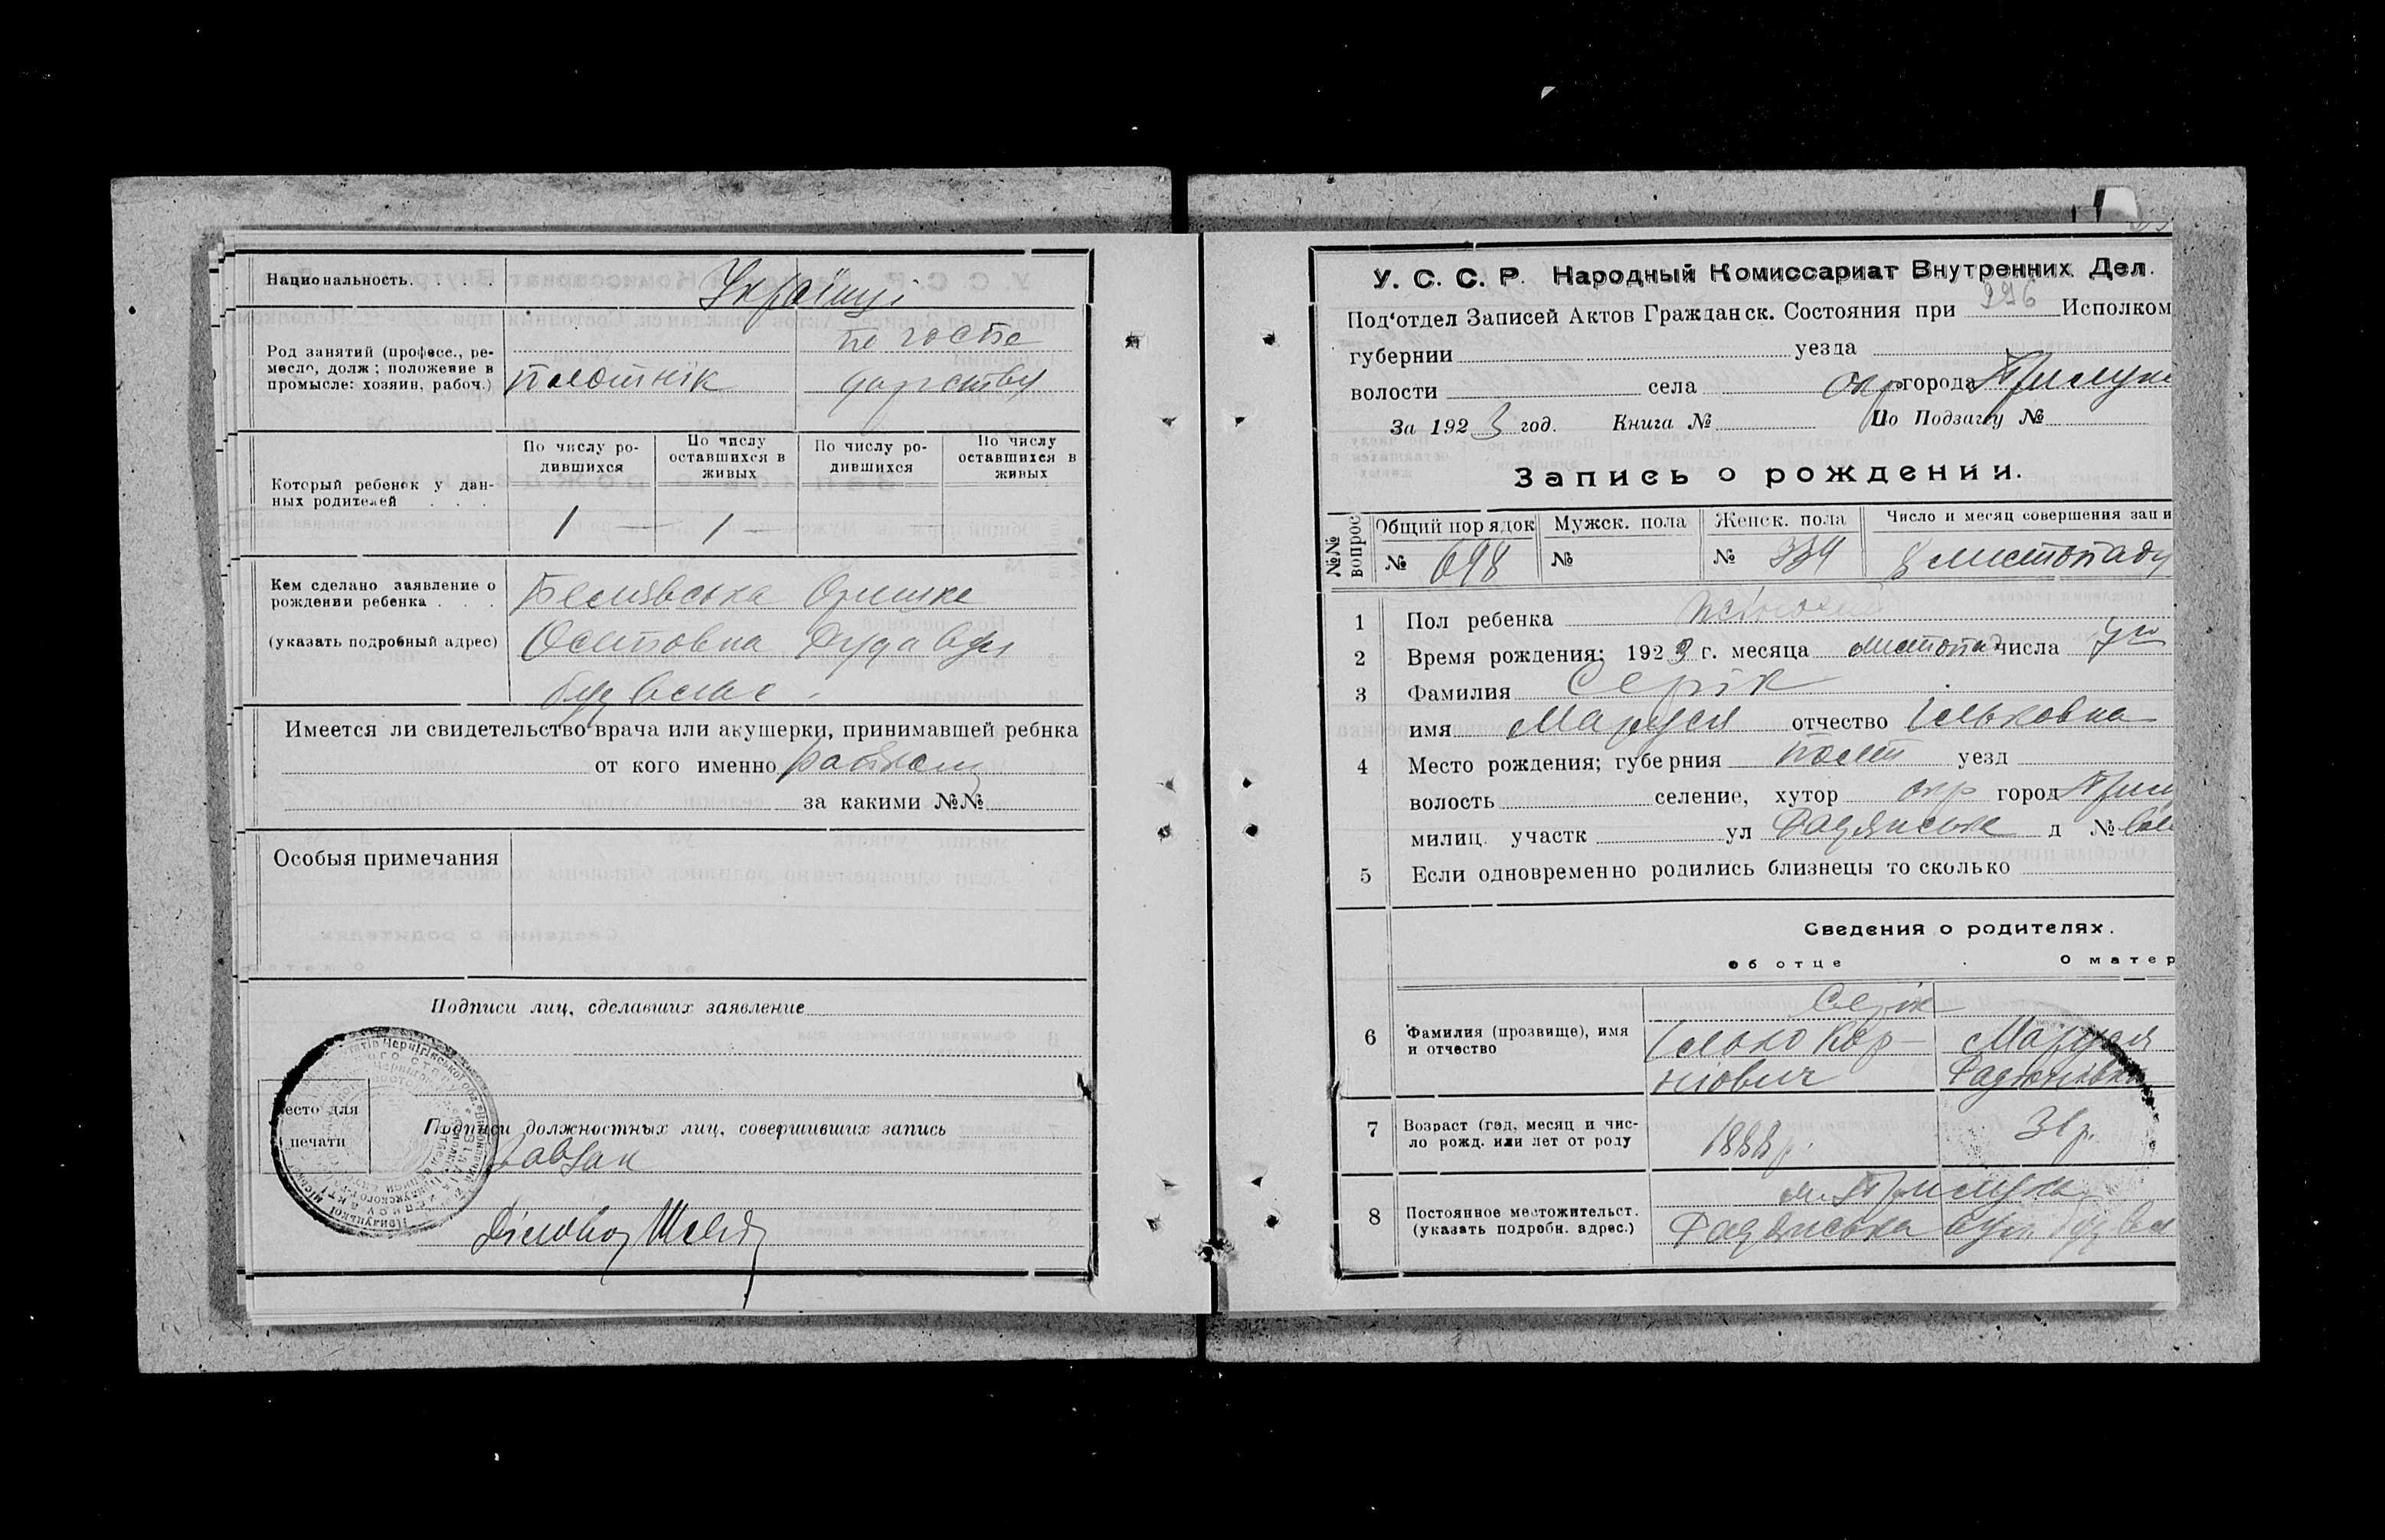 Национальность. . . . Українці
по госпо
Род занятий (професс., ре-
месло, долж; положение в
промысле: хозяин, рабоч.) плотнік дарству
По числу ро-
дившихся
По числу
оставшихся в
живых
По числу ро-
дившихся
По числу
оставшихся в
живых
Который ребенок у дан-
ных родителей . . .
1 — 1 —
Кем сделано заявление о
рождении ребенка . . .
Оришка
(указать подробный адрес) Осиповна
Имеется ли свидетельство врача или акушерки, принимавшей ребнка
от кого именно
за какими №№
Особыя примечания
Подписи лиц, сделавших заявление
Место для
печати
Подписи должностных лиц, совершивших запись
Діловод
У. С. С. Р. Народный Комиссариат Внутренних Дел.
Под'отдел Записей Актов Гражданск. Состояния при Исполком
губернии уезда
волости села окр города Прилуки
За 1923 год. Книга № По Подзагу №
Запись о рождении.
№№ вопрос
Общий порядок Мужск. пола Женск. пола Число и месяц совершения запи
№ 698 № № 334 8 листопаду
1 Пол ребенка жіночий
2 Время рождения; 1923 г. месяца листопад числа 7го
3 Фамилия Серік
имя Маруся отчество Ільковна
4 Место рождения; губерния Полт уезд
волость селение, хутор окр город Прил
милиц. участк ул Радянська д № вл
5 Если одновременно родились близнецы то сколько
Сведения о родителях.
об отце О матер
Серік
6 Фамилия (прозвище), имя
и отчество
Ілько Кор-
нієвич
Маруся
7 Возраст (год, месяц и чис-
ло рожд. или лет от роду
1888 р. 31 р.
м. Прилуки
8 Постоянное местожительст.
(указать подробн. адрес.)
Радянська вул. буд вл